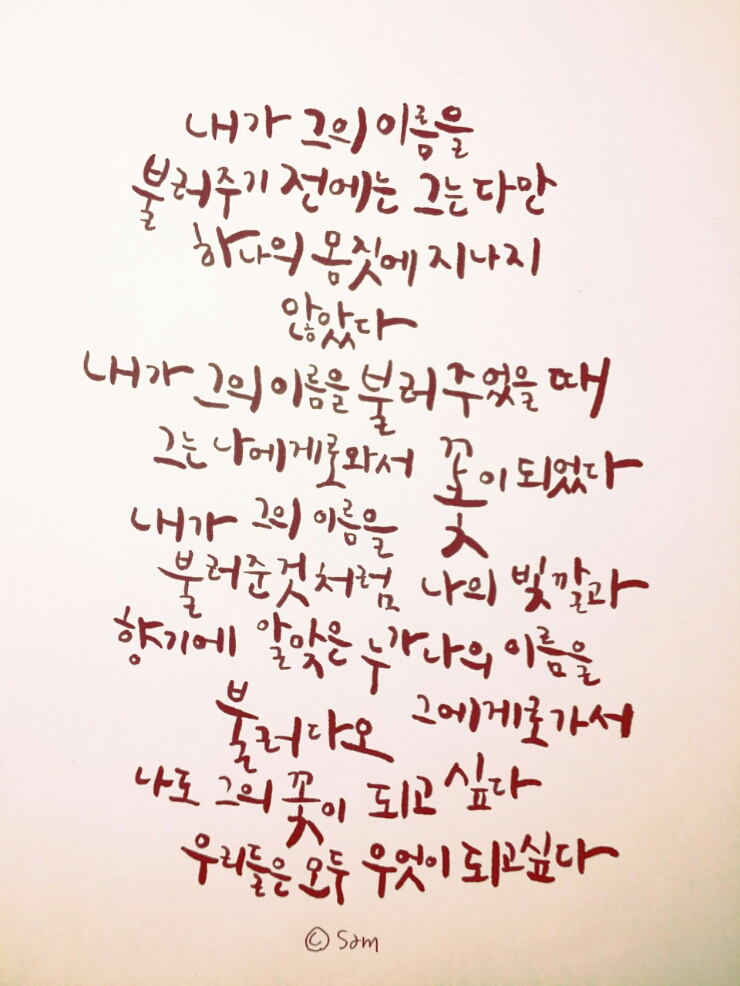 내가 그의 이름을
불러주기 전에는 그는 다만
하나의 몸짓에 지나지
않았다
내가 그의 이름을 불러 주었을 때
그는 나에게로 와서 꽃이 되었다
내가 그의 이름을
불러준것처럼 나의 빛깔과
향기에 알맞은 누가 나의 이름을
불러다오 그에게로 가서
나도 그의 꽃이 되고 싶다
우리들은 모두 무엇이 되고싶다
© Sam